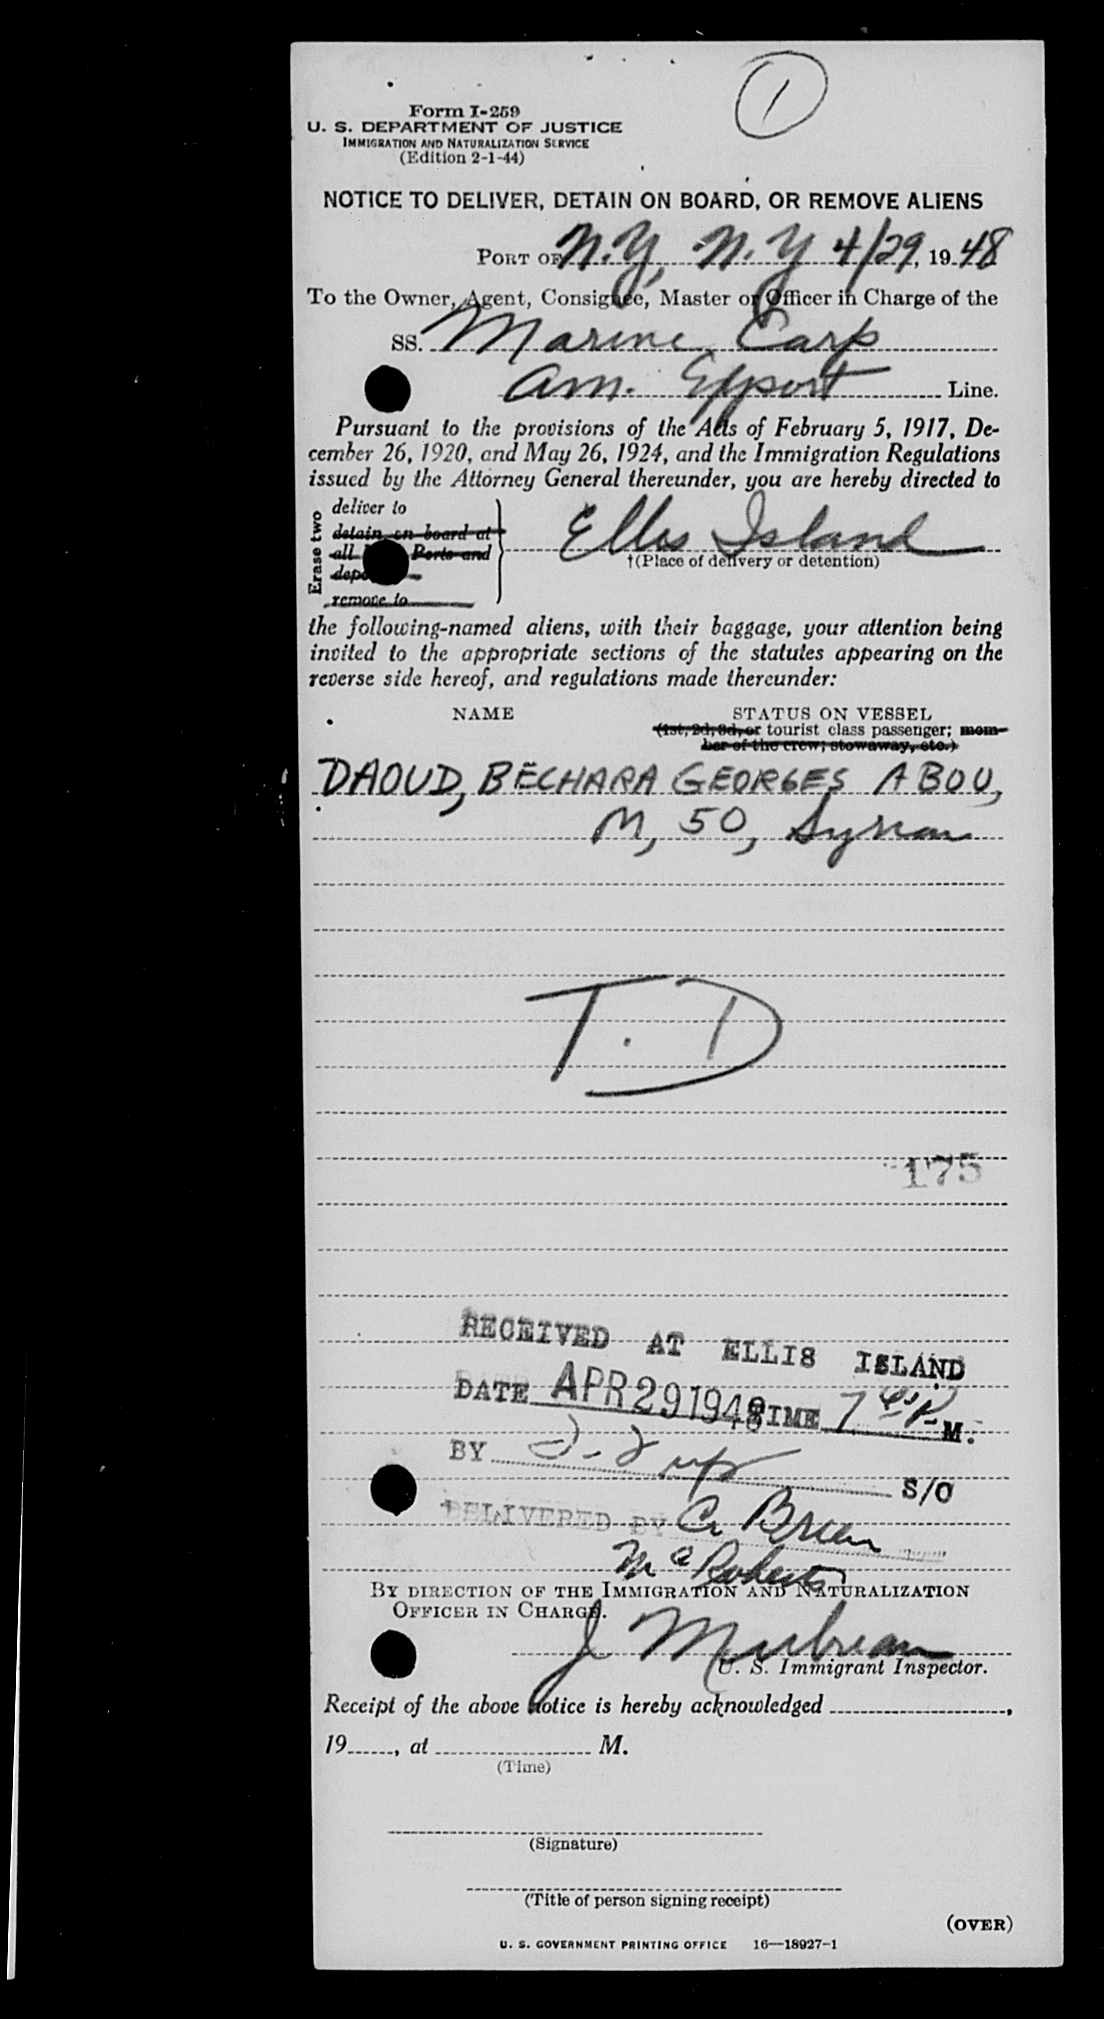 1
Form I-259
U. S. DEPARTMENT OF JUSTICE
IMMIGRATION AND NATURALIZATION SERVICE
(Edition 2-1-44)
NOTICE TO DELIVER, DETAIN ON BOARD, OR REMOVE ALIENS
PORT OF N.Y, N.Y 4/29, 19 48
To the Owner, Agent, Consignee, Master or Officer in Charge of the
SS. Marine Carp
Am. Export Line.
Pursuant to the provisions of the Acts of February 5, 1917, De-
cember 26, 1920, and May 26, 1924, and the Immigration Regulations
issued by the Attorney General thereunder, you are hereby directed to
Erase two
deliver to
detain on board at
all Ports and
remove to
Ellis Island
†(Place of delivery or detention)
the following-named aliens, with their baggage, your attention being
invited to the appropriate sections of the statutes appearing on the
reverse side hereof, and regulations made thereunder:
NAME STATUS ON VESSEL
(1st, 2d, 3d, or tourist class passenger; mem-
ber of the crew; stowaway, etc.)
DAOUD, BECHARA GEORGES ABOU,
M, 50, Syrian
T. D
175
RECEIVED AT ELLIS ISLAND
DATE APR 29 1948 TIME 7 P M.
BY S/O
DELIVERED BY
BY DIRECTION OF THE IMMIGRATION AND NATURALIZATION
OFFICER IN CHARGE.
J
U. S. Immigrant Inspector.
Receipt of the above notice is hereby acknowledged ,
19 , at M.
(Time)
(Signature)
(Title of person signing receipt)
(OVER)
U. S. GOVERNMENT PRINTING OFFICE 16—18927-1